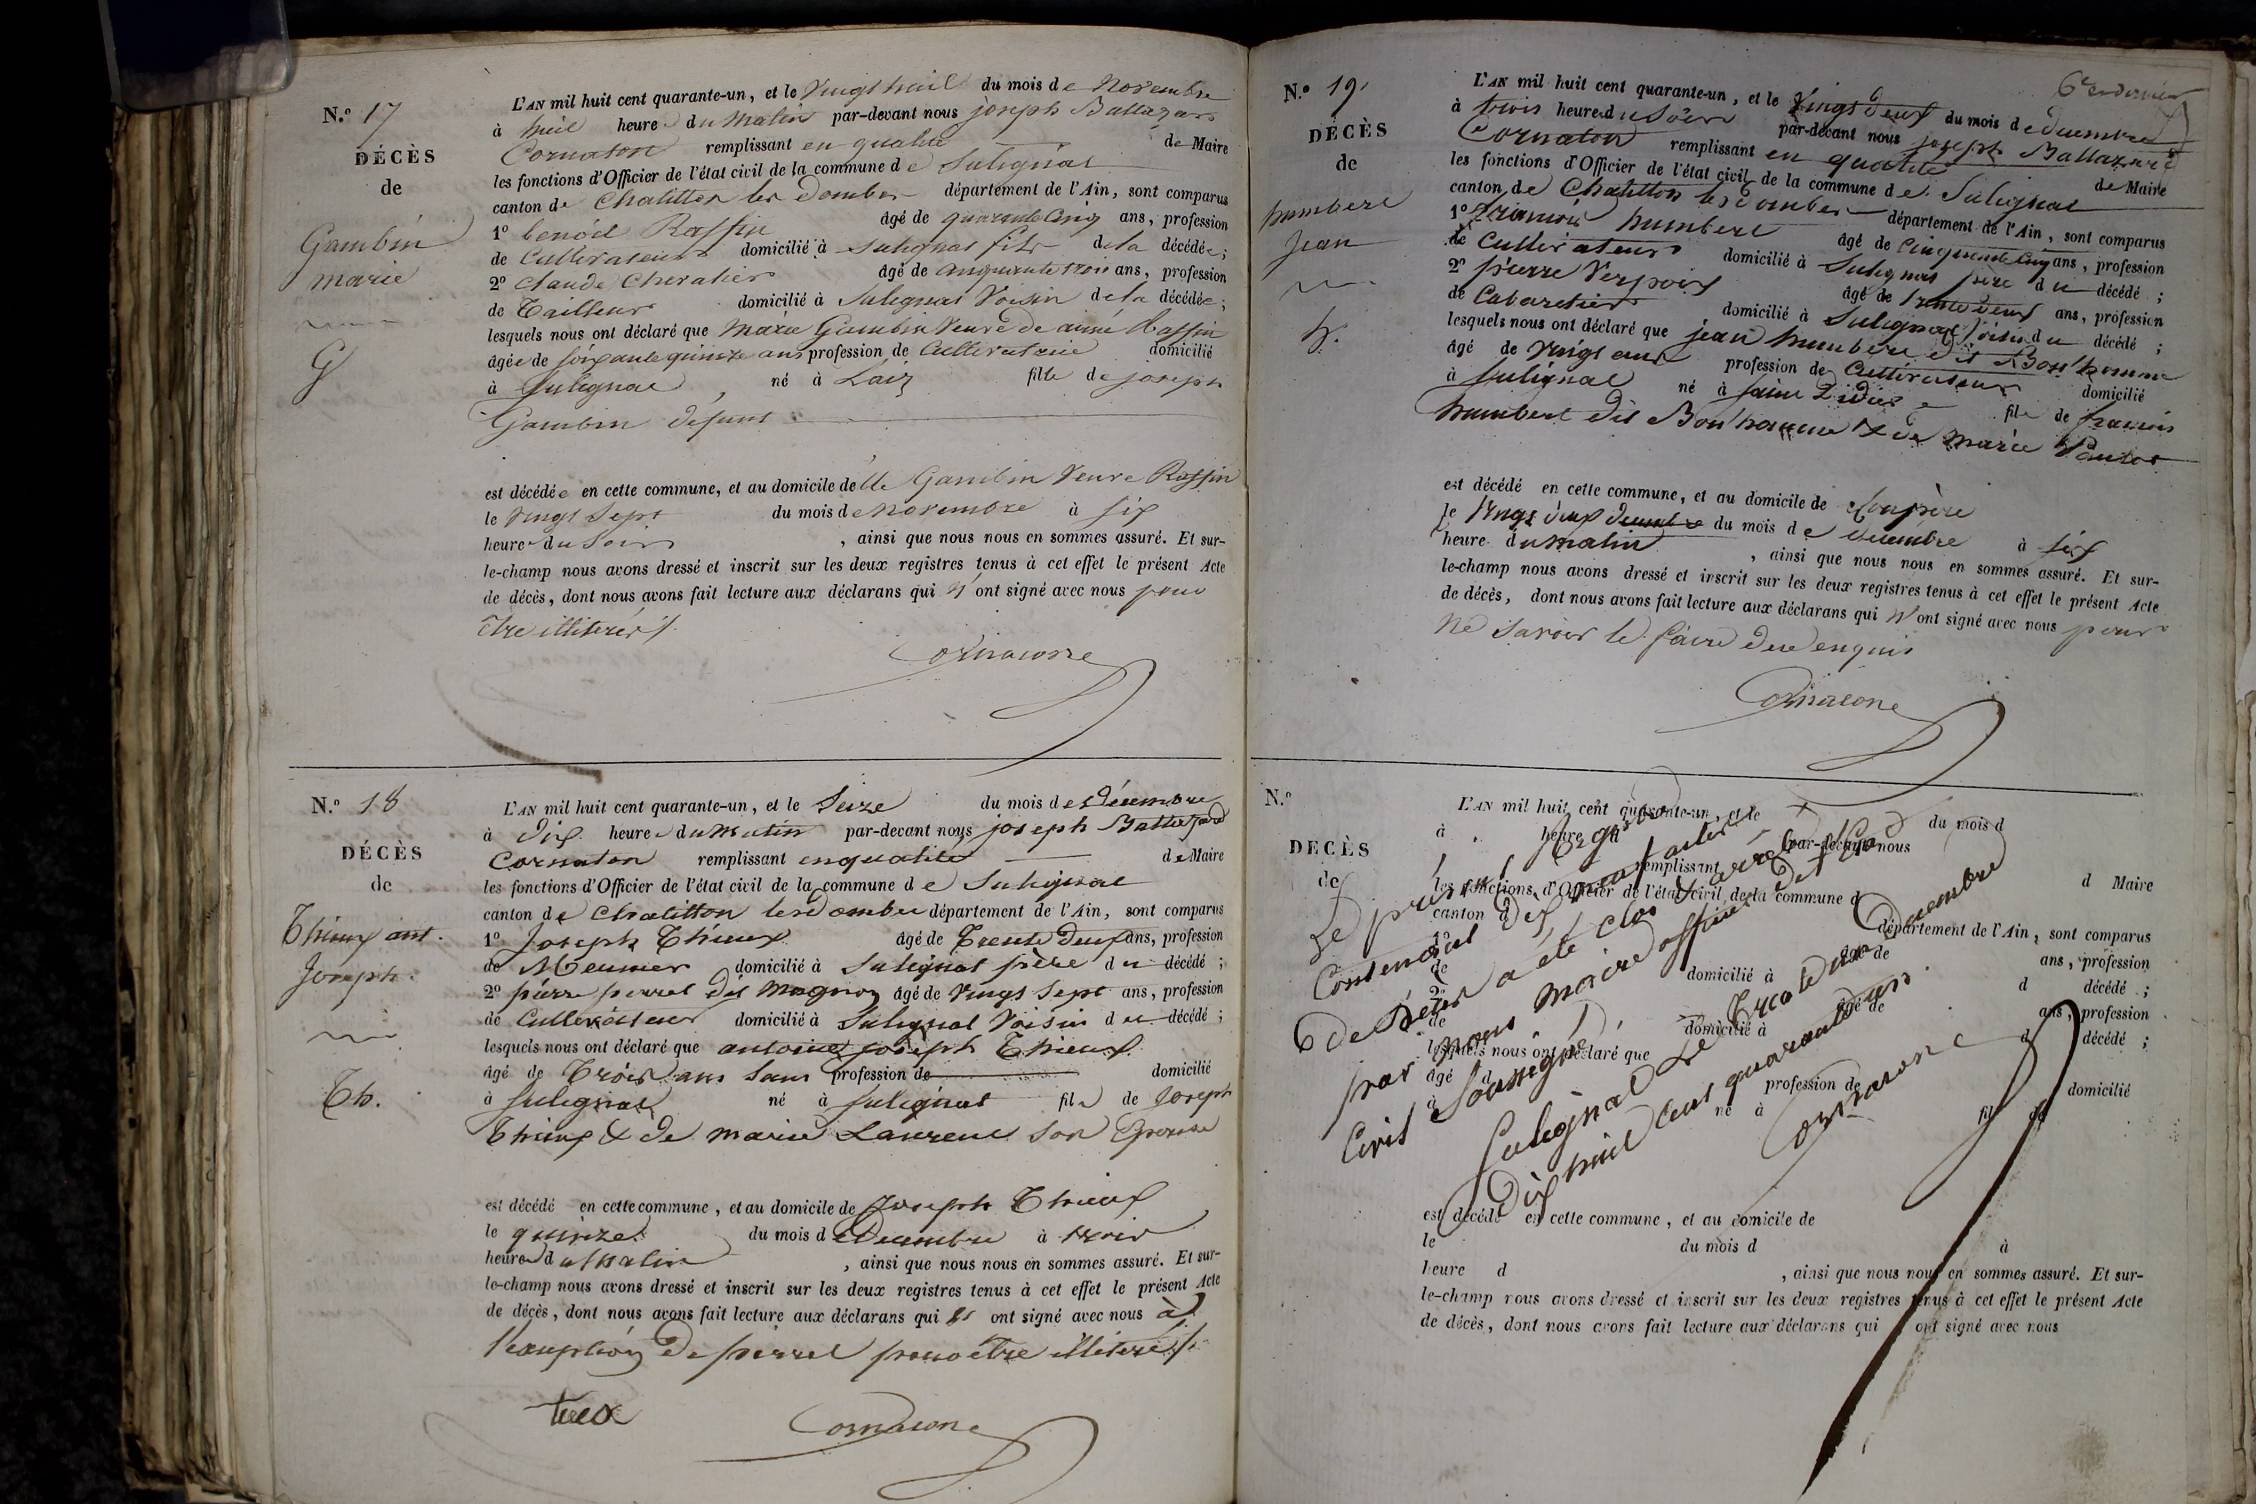 N.º 17
DÉCÈS
de
Gambin
marie
G
L'AN mil huit cent quarante-un, et le Vingt huit du mois de Novembre
à huit heure du Matin par-devant nous joseph Baltazard
Cornaton remplissant en qualité de Maire
les fonctions d'Officier de l'état civil de la commune de Sulignat
canton de Chatillon les dombes département de l'Ain, sont comparus
1º benoit Raffin âgé de quarante cinq ans, profession
de Cultivateur domicilié à Sulignat fils de la décédée;
2º Claude Chevalier âgé de cinquante trois ans, profession
de Tailleur domicilié à Sulignat Voisin de la décédée;
lesquels nous ont déclaré que Marie Gambin Veuve de aimé Raffin
âgée de soixante quinze ans profession de Cultivatrice domicilié
à Sulignat né à Laiz fille de joseph
Gambin défunt
est décédée en cette commune, et au domicile de lle Gambin Veuve Raffin
le Vingt Sept du mois de Novembre à six
heure du Soir, ainsi que nous nous en sommes assuré. Et sur-
le-champ nous avons dressé et inscrit sur les deux registres tenus à cet effet le présent Acte
de décès, dont nous avons fait lecture aux déclarans qui n'ont signé avec nous pour
être illitérés
Cornatone
N.º 18
DÉCÈS
de
Thieux ant.
Joseph.
Th.
L'AN mil huit cent quarante-un, et le Seize du mois de Décembre
à dix heure du Matin par-devant nous joseph Baltazard
Cornaton remplissant en qualité de Maire
les fonctions d'Officier de l'état civil de la commune de Sulignat
canton de Chatillon les dombes département de l'Ain, sont comparus
1º Joseph Thieux âgé de Trente deux ans, profession
de Meunier domicilié à Sulignat père du décédé;
2º pierre perret dit Magnon âgé de Vingt Sept ans, profession
de Cultivateur domicilié à Sulignat Voisin du décédé;
lesquels nous ont déclaré que antoine joseph Thieux
âgé de Trois ans Sans profession de domicilié
à Sulignat né à Sulignat fils de Joseph
Thieux & de marie Laurent son Epouse
est décédé en cette commune, et au domicile de Joseph Thieux
le quinze du mois de Décembre à trois
heure du Matin, ainsi que nous nous en sommes assuré. Et sur-
le-champ nous avons dressé et inscrit sur les deux registres tenus à cet effet le présent Acte
de décès, dont nous avons fait lecture aux déclarans qui ont signé avec nous à
l'exeption de perret pour être illitéré
Cornatone
N.º 19
DÉCÈS
de
humbert
Jean
h.
6e et dernier
L'AN mil huit cent quarante-un, et le Vingt deux du mois de decembre
à trois heure du Soir par-devant nous joseph Baltazard
Cornaton remplissant en qualité de Maire
les fonctions d'Officier de l'état civil de la commune de Sulignat
canton de Chatillon les dombes département de l'Ain, sont comparus
1º francois humbert âgé de Cinquante Cinq ans, profession
de Cultivateur domicilié à Sulignat père du décédé;
2º pierre Verpoix âgé de trente deux ans, profession
de Cabaretier domicilié à Sulignat Voisin du décédé;
lesquels nous ont déclaré que jean humbert dit Bon'homme
âgé de Vingt ans profession de Cultivateur domicilié
à Sulignat né à Saint Didier fils de francois
humbert dit Bon'homme & de Marie
est décédé en cette commune, et au domicile de Son père
le Vingt deux decembre du mois de decembre à six
heure du Matin, ainsi que nous nous en sommes assuré. Et sur-
le-champ nous avons dressé et inscrit sur les deux registres tenus à cet effet le présent Acte
de décès, dont nous avons fait lecture aux déclarans qui n'ont signé avec nous pour
ne savoir le faire de ce enquis
Cornatone
N.º
DÉCÈS
de
L'AN mil huit cent quarante-un, et le du mois d
à heure d par-devant nous
remplissant d Maire
les fonctions d'Officier de l'état civil de la commune d
canton d département de l'Ain, sont comparus
1º âgé de ans, profession
de domicilié à d décédé;
2º âgé de ans, profession
de domicilié à d décédé;
lesquels nous ont déclaré que
âgé d profession de domicilié
à né à fil de
Le présent Registre
Contenant dix neuf actes
de Décès a été Clos & arrêté
par nous Maire officier de l'état
Civil Soussigné
Sulignat Le Trente un Decembre
Dix huit Cent quarante un.
Cornatone
est décédé en cette commune, et au domicile de
le du mois d à
heure d, ainsi que nous nous en sommes assuré. Et sur-
le-champ nous avons dressé et inscrit sur les deux registres tenus à cet effet le présent Acte
de décès, dont nous avons fait lecture aux déclarans qui ont signé avec nous